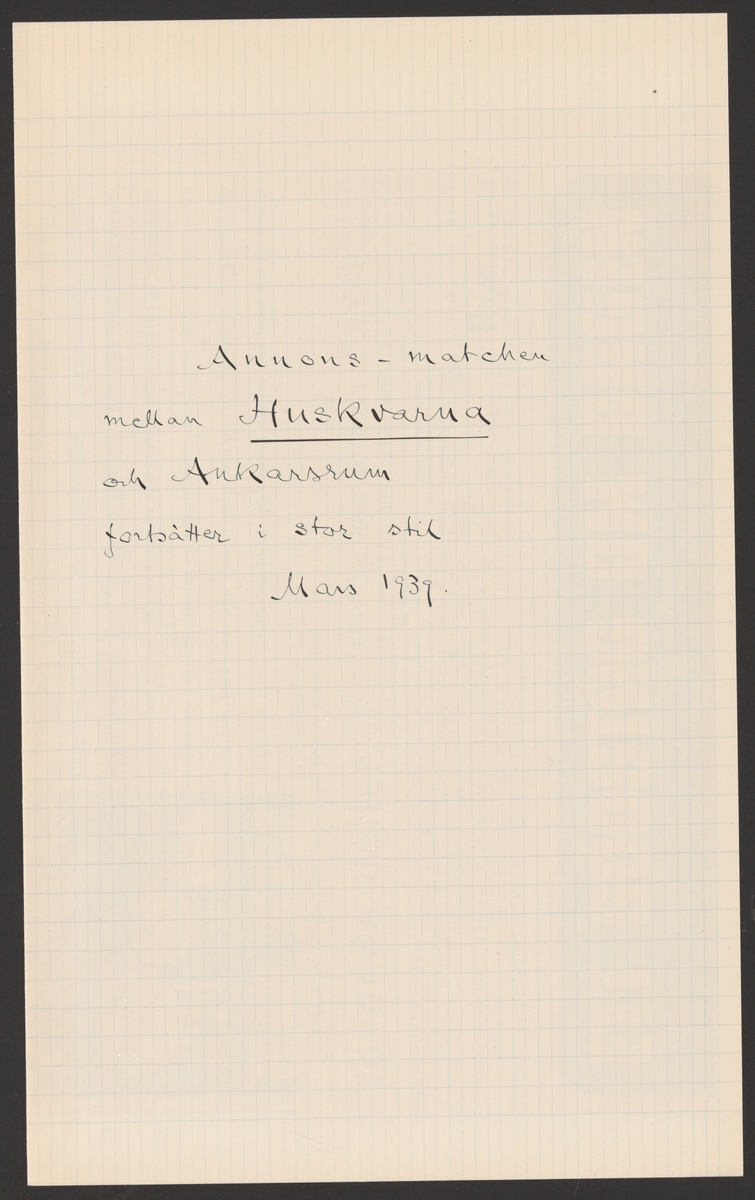 Annons-matchen
mellan Huskvarna
och Ankarsrum
fortsätter i stor stil
Mars 1939.